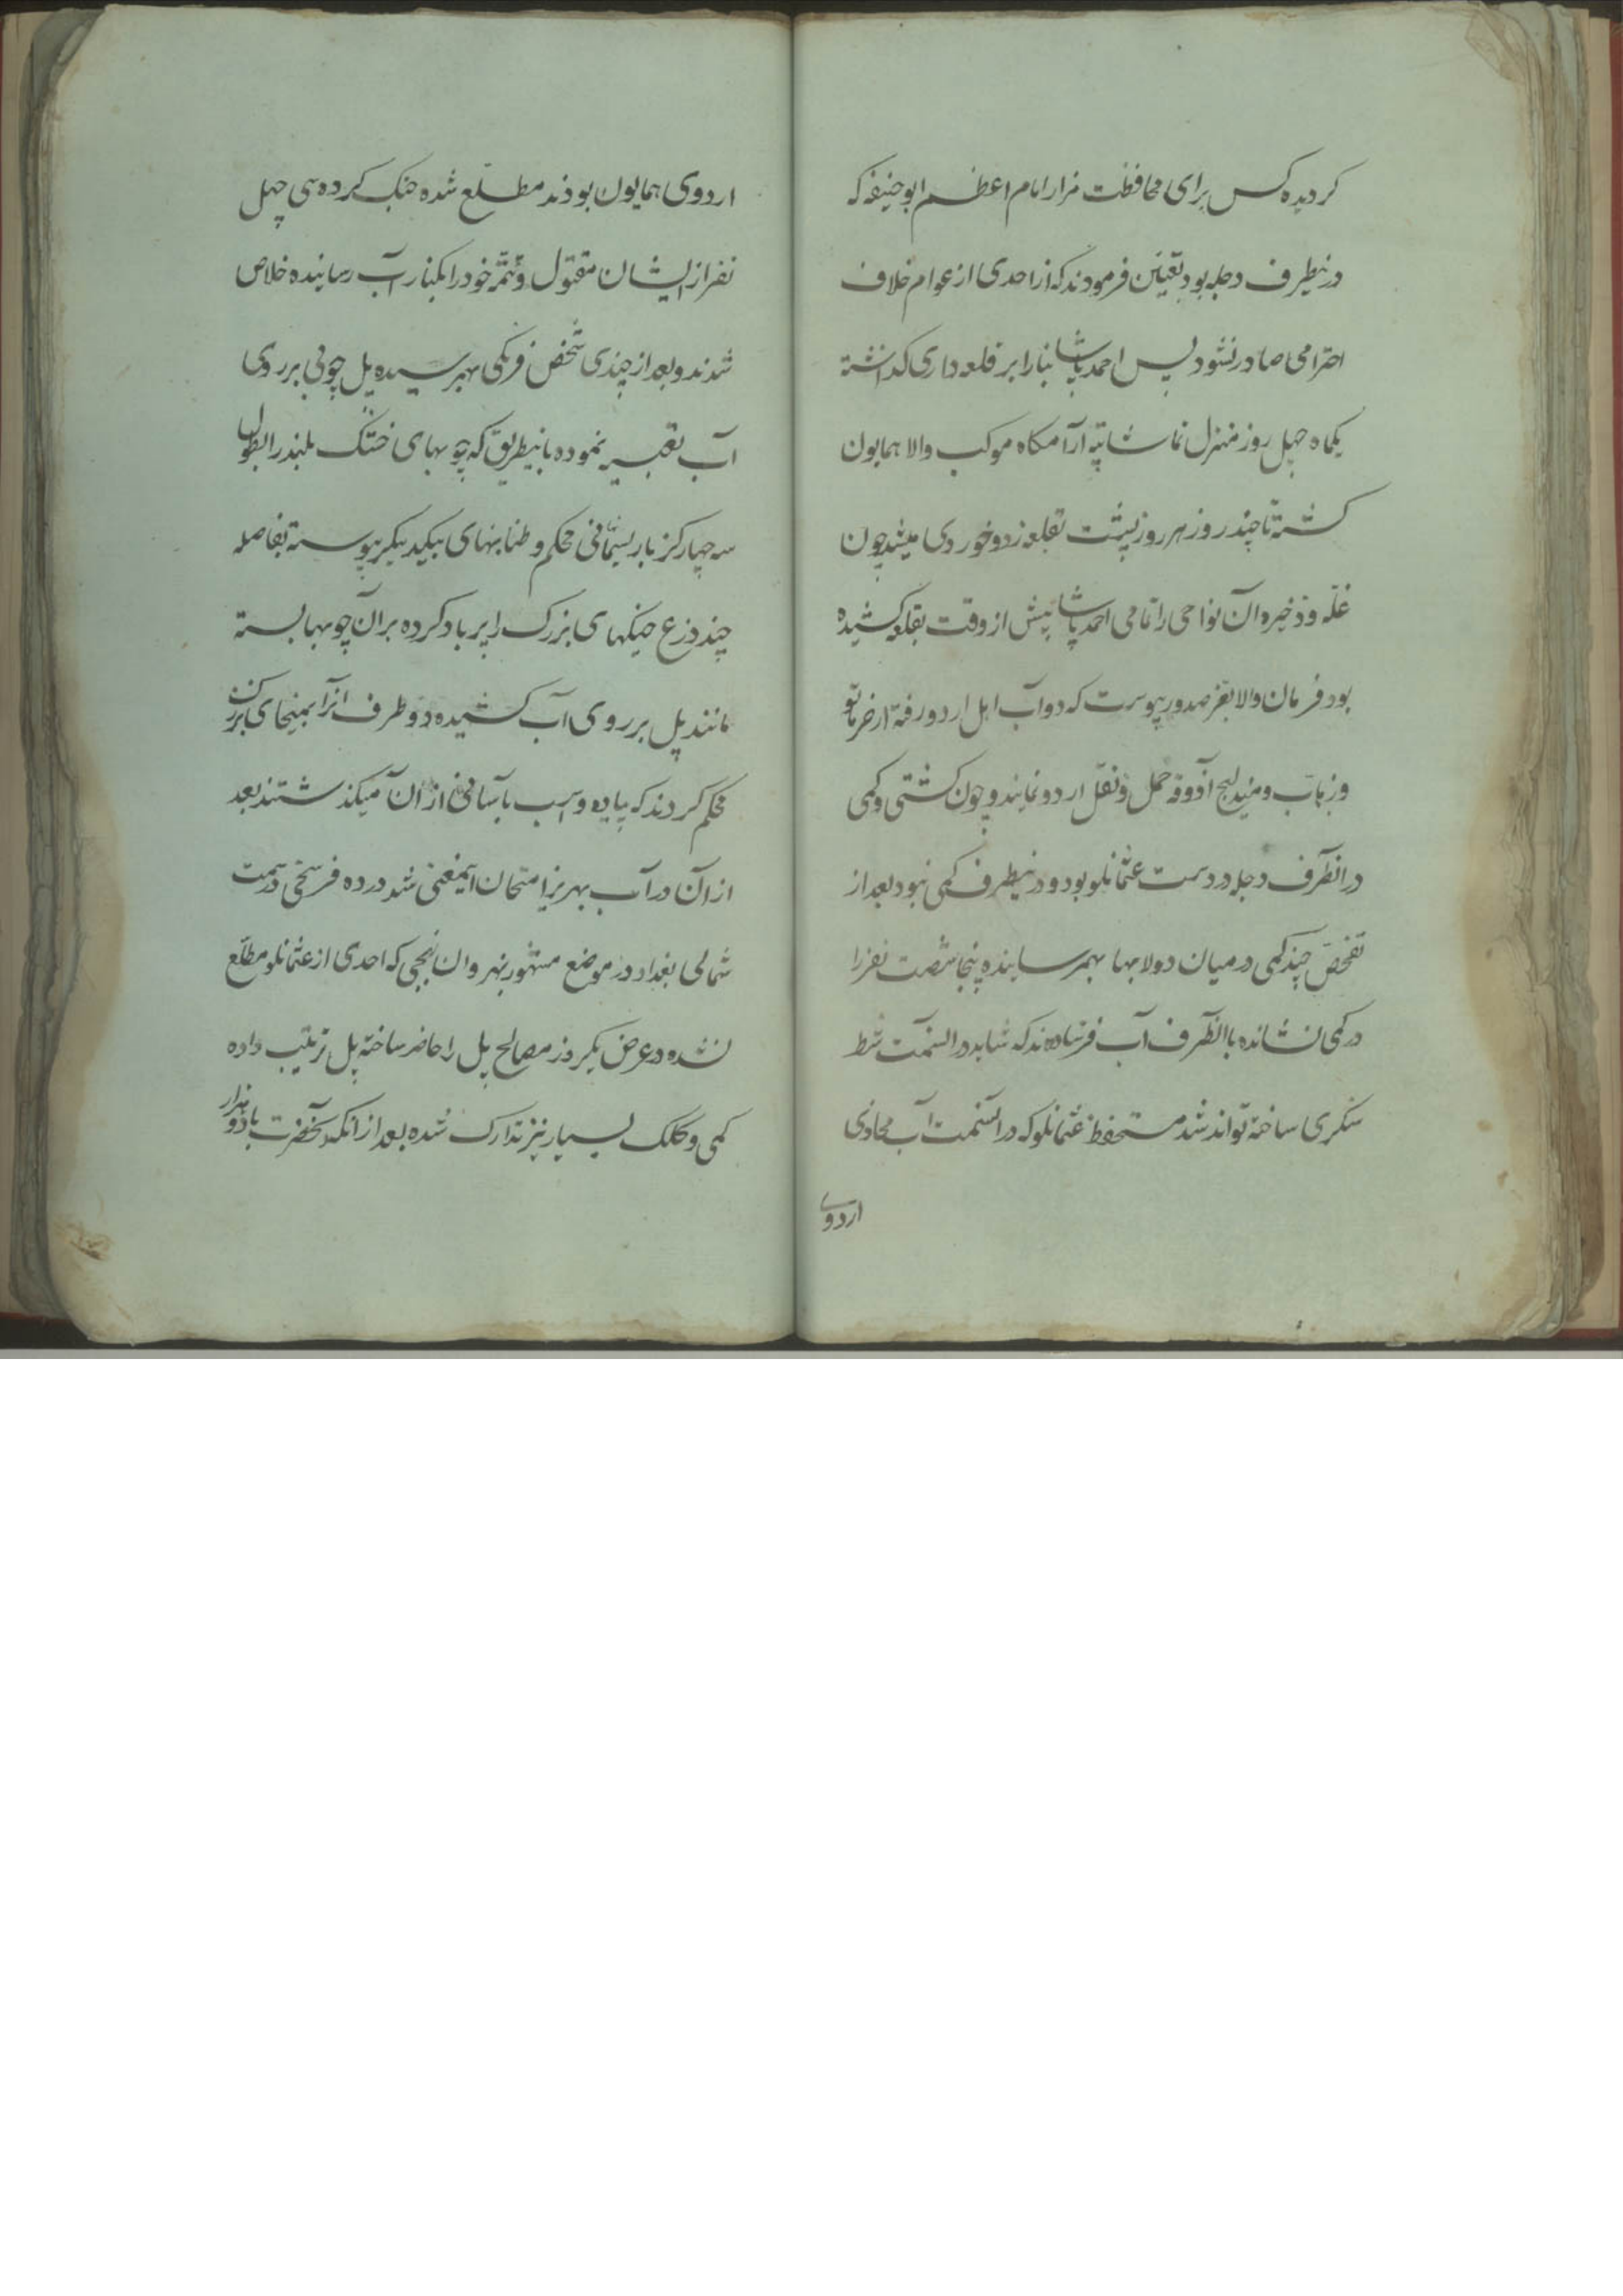 کردیده کس برای محافظت مزار امام اعظم ابو حنیفه که
درینطرف دجله بود تعیین فرمودند که از احدی از عوام خلاف
احترامی صادر نشود پس احمد پاشا بنا را بر قلعه داری کذاشته
یکماه چهل روز منزل نما شاتپه آرامکاه موکب والا همایون
کشته تا چند روز هر روز بپشت قلعه زد و خوردی میشد چون
غله و ذخیره آن نواحی را تمامی احمد پاشا پیش از وقت بقلعه کشیده
بود فرمان والا بعز صدور پیوست که دواب اهل اردو رفته از خرماتو
و زهاب و مندلیج آذوقه حمل و نقل اردو نمایند و چون کشتی و کمی
در انطرف دجله در دست عثمانلو بود و درینطرف کمی نبود بعد از
تفحص چند کمی در میان دولابها بهمرسانیده پنجاه شصت نفر را
در کمی نشانده باانطرف آب فرستادند که شاید در السمت شط
سنکری ساخته تواند شد مستحفظ عثمانلو که در السمت آب محاذی
اردوی
اردوی همایون بودند مطلع شده جنک کرده سی چهل
نفر از ایشان مقتول و تتمه خود را بکنار آب رسانیده خلاص
شدند و بعد از چندی شخص فرنکی بهم رسیده پل چوبی بر روی
آب تعبیر نموده باینطریق که چوبهای خشک بلند را بطول
سه چهار کز با ریسمانی محکم و طنابهای بیکدیگر پیوسته بفاصله
چند ذرع خیکهای بزرک را پر باد کرده بر آن چوبها بسته
مانند پل بر روی آب کشیده دو طرف انرا بمیخهای بزرک
محکم کردند که پیاده و اسب باسانی از ان میکذشتند بعد
از آن در آب بهریز امتحان اینمعنی شد در ده فرسخی در سمت
شمالی بغداد در موضع مشهور بنهروان بنهجی که احدی از عثمانلو مطلع
نشده در عرض یکروز مصالح پل را حاضر ساخته پل ترتیب داده
کمی و کلک بسیار نیز تدارک شده بعد از انکه آنحضرت با دو هزار